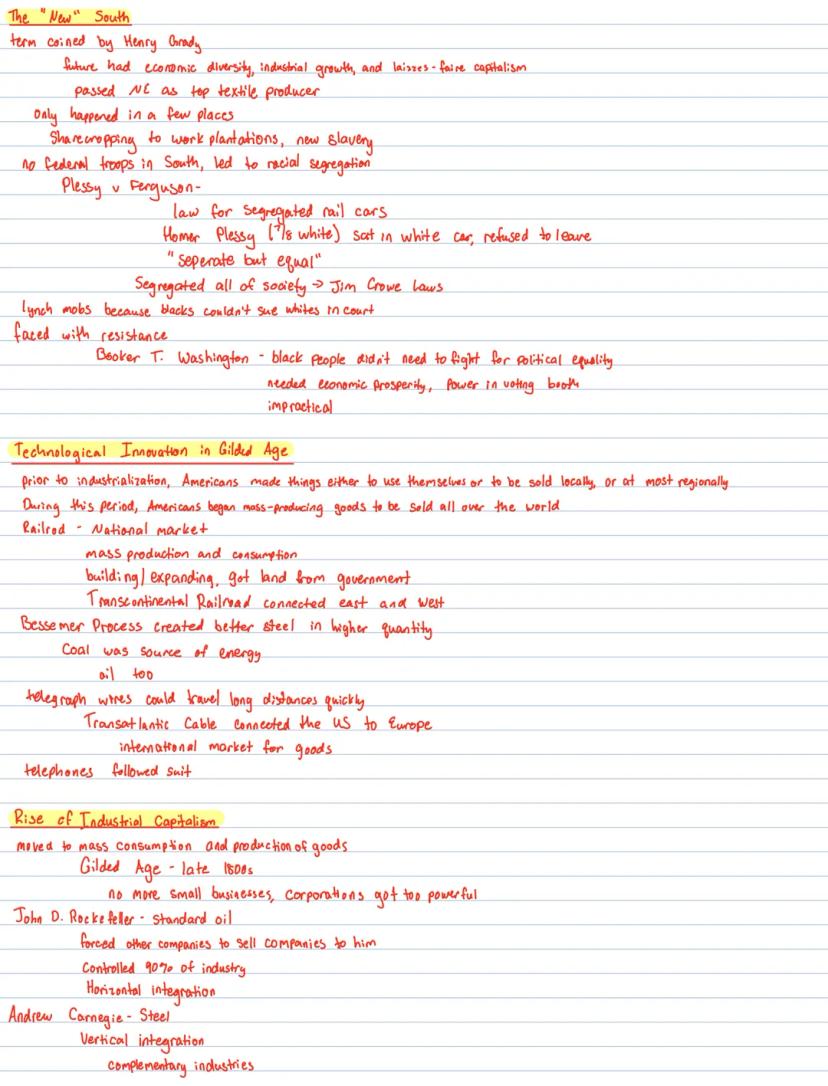 The "New" South
term coined by Henry Grady
future had economic diversity, industrial growth, and laisses-faire capitalism
passed NE as top textile producer
only happened in a few places
Sharecropping to work plantations, new slavery
no federal troops in South, led to racial segregation
Plessy v Ferguson-
law for segregated rail cars
Homer Plessy (7/8 white) sat in white car, refused to leave
"seperate but equal"
Segregated all of society → Jim Crowe Laws
lynch mobs because blacks couldn't sue whites in court
faced with resistance
Booker T. Washington - black people didn't need to fight for political equality
needed economic prosperity, power in voting booth
impractical
Technological Innovation in Gilded Age
prior to industrialization, Americans made things either to use themselves or to be sold locally, or at most regionally
During this period, Americans began mass-producing goods to be sold all over the world
Railrod - National market
mass production and consumption
building/expanding, got land from government
Transcontinental Railroad connected east and west
Bessemer Process created better steel in higher quantity
Coal was source of energy
oil too
telegraph wires could travel long distances quickly
Transatlantic Cable connected the US to Europe
international market for goods
telephones followed suit
Rise of Industrial Capitalism
moved to mass consumption and production of goods
Gilded Age - late 1800s
no more small businesses, corporations got too powerful
John D. Rockefeller - standard oil
forced other companies to sell companies to him
Controlled 90% of industry
Horizontal integration
Andrew Carnegie - Steel
Vertical integration
complementary industries